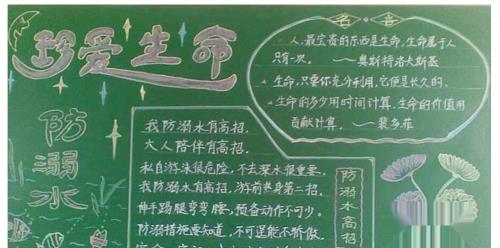 珍爱生命
防溺水
名言
人,最宝贵的东西是生命,生命属于人
只有一次。——奥斯特洛夫斯基
生命,只要你充分利用,它便是长久的。
生命的多少用时间计算,生命的价值用
贡献计算。——裴多菲
我防溺水有高招,
大人陪伴有高招。
私自游泳很危险,不去深水很重要。
我防溺水有高招,游前热身第二招,
伸手踢腿弯弯腰,预备动作不可少。
防溺措施要知道,不可逞能不骄傲。
防溺水高招